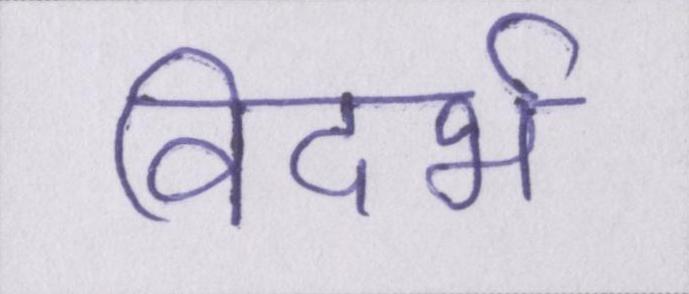 विदर्भ